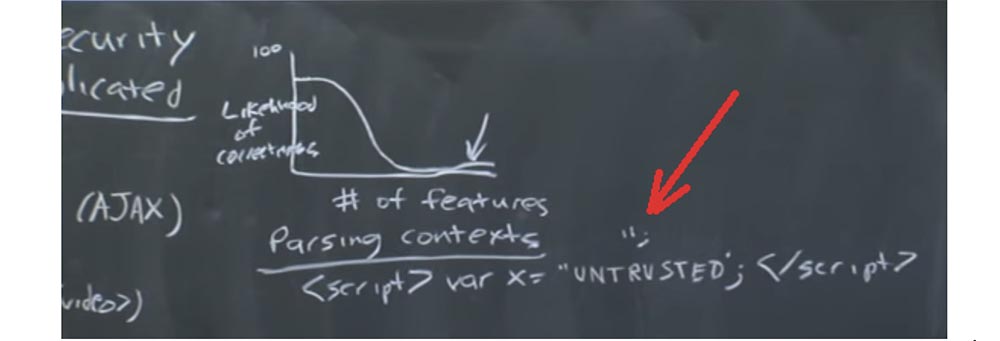 ecurity
licated
100
Likelihood
of
correctness
# of features
(AJAX)
Parsing contexts
";
<script> var x= "UNTRUSTED"; </script>
video>)